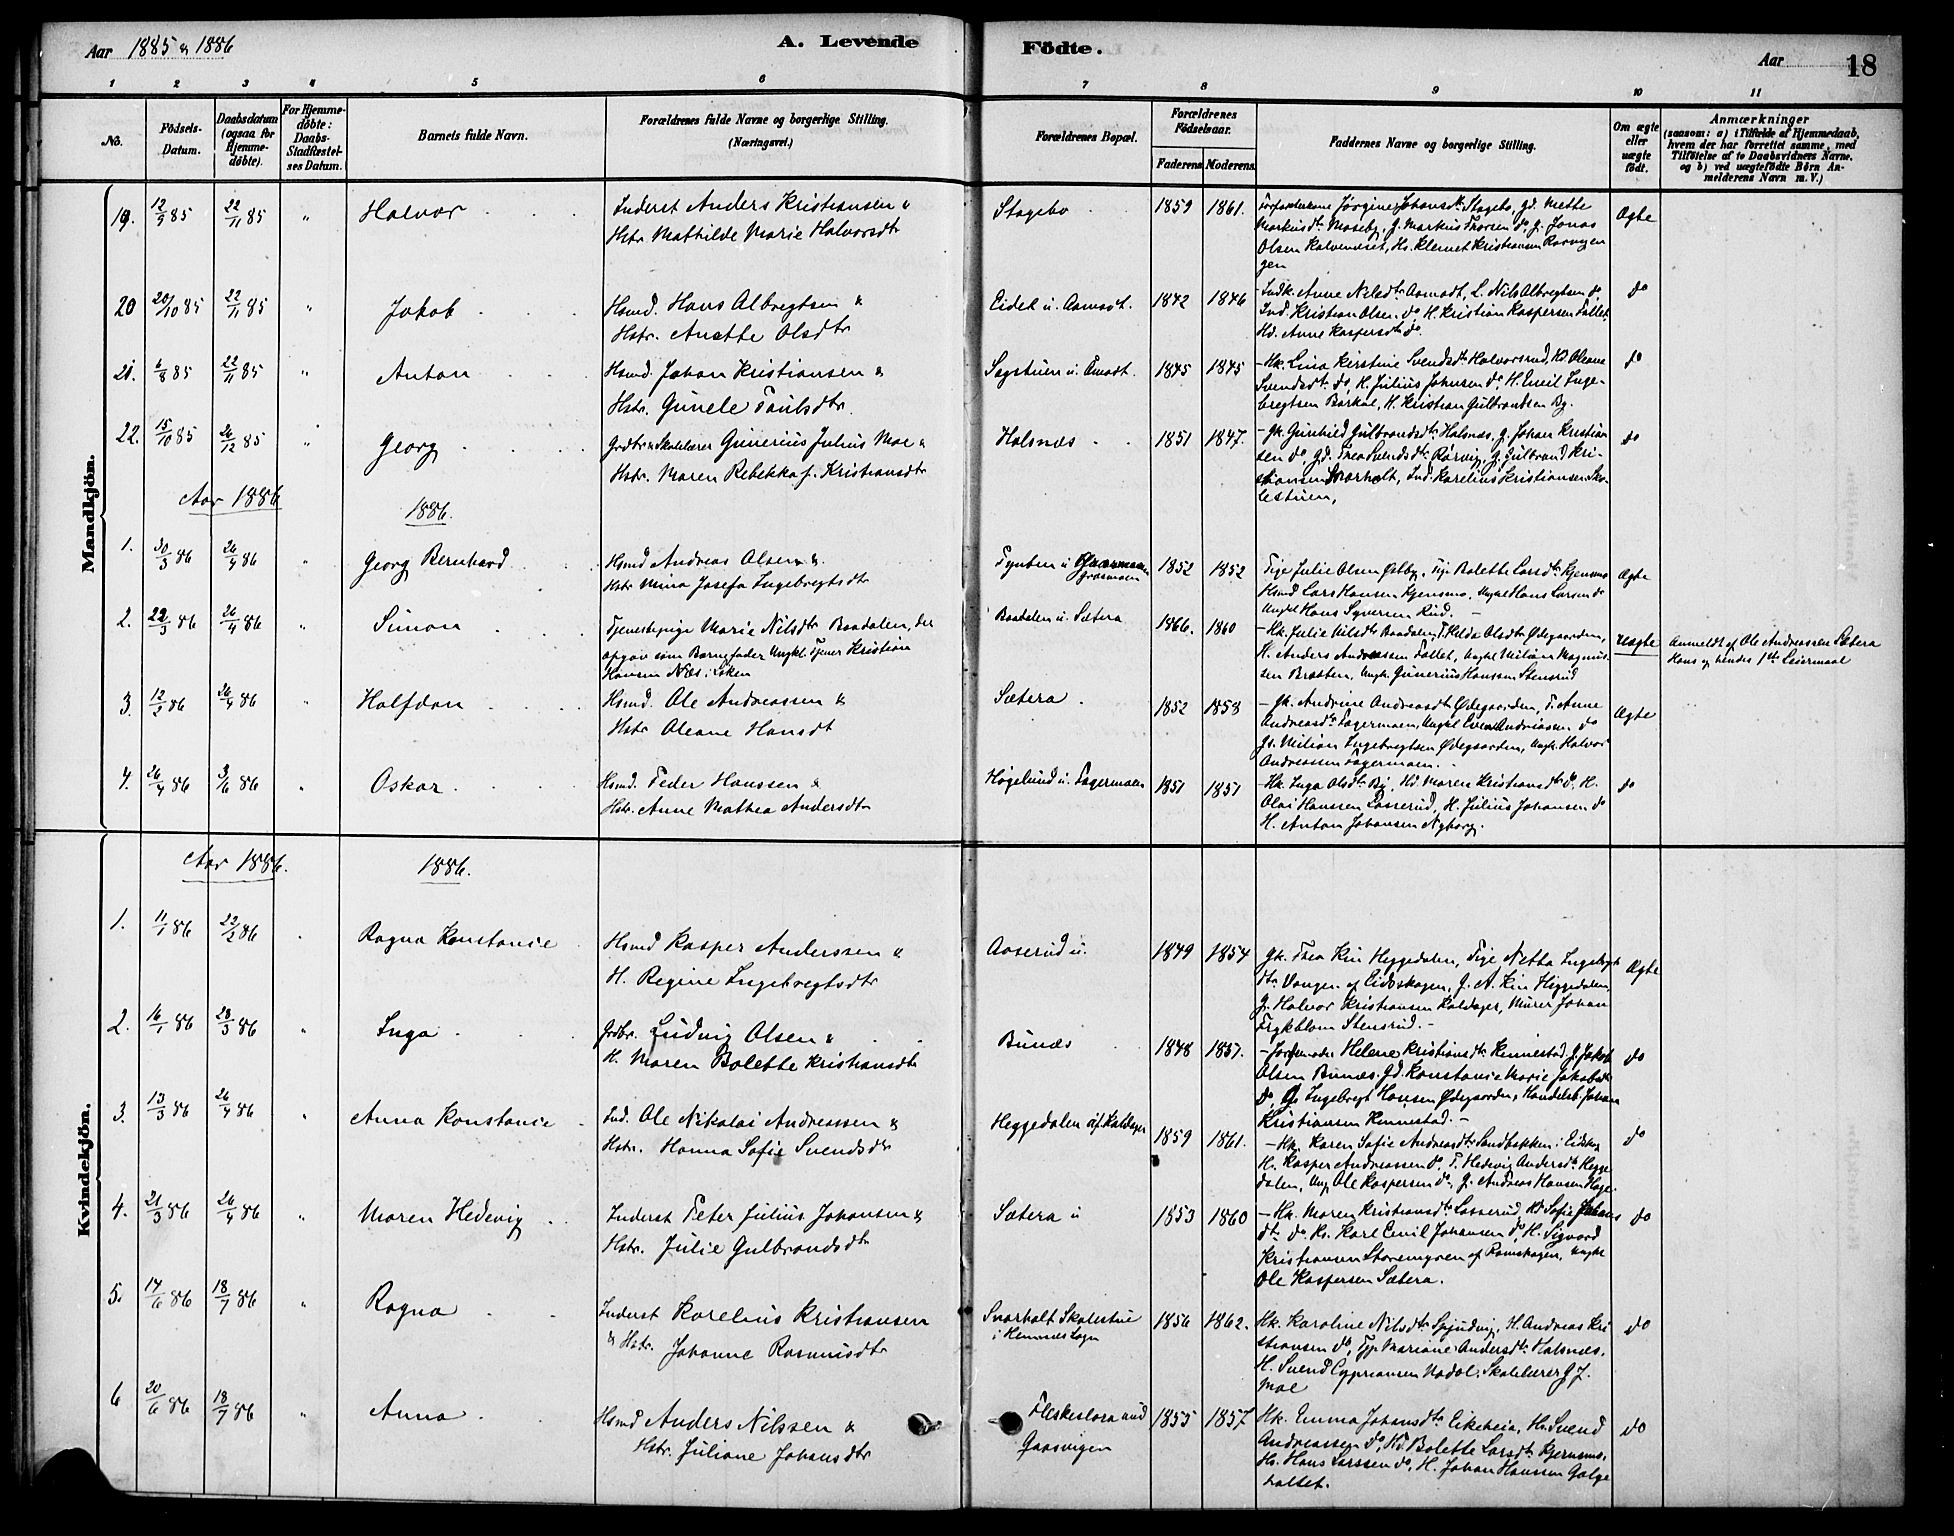 Aar 1885 & 1886
A. Levende
Födte.
Aar
18
1 2 3 4 5 6 7 8 9 10 11
No.
Födsels-Datum.
Daabsdatum (ogsaa for Hjemme-döbte).
For Hjemme-döbte: Daabs-Stadfæstel-ses Datum.
Barnets fulde Navn.
Forældrenes fulde Navne og borgerlige Stilling. (Næringsvei.)
Forældrenes Bopæl.
Forældrenes Födselsaar.
Faderens
Moderens
Faddernes Navne og borgerlige Stilling.
Om ægte eller uægte födt.
Anmærkninger
(saasom: a) i Tilfælde af Hjemmedaab,
hvem der har forrettet samme, med
Tilföielse af to Daabsvidners Navne,
og b) ved uægtefödte Börn An-
melderens Navn m. V.)
Mandkjön.
19. 12/9 85 22/11 85 " Halvor
Inderst Anders Kristiansen &
Hstr Mathilde Marie Halvorsdtr
Stagebo 1859 1861.
Markusdtr Moseby, G. Markus Thorsen do G. Jonas
Ægte
20 20/10 85 22/11 85 " Jakob
Hsmd. Hans Albregtsen &
Hstr. Anette Olsdtr
Eidet u. Aamodt. 1842 1846
Indk. Anne Nilsdtr Aamodt, L. Nils Albregtsen do,
Ind. Kristian Olsen do H. Kristian Kaspersen Fallet,
Hd. Anne Kaspersdtr do.
do
21. 6/8 85 22/11 85 " Anton
Hsmd. Johan Kristiansen &
Hstr. Gunele Poulsdtr.
Sagstuen u. Åmodt. 1845 1845
Hk. Lina Kirstine Svendsdtr Halvorsrud, Hd. Oleane
Svendsdtr do, H. Julius Johnsen do, H. Emil Inge-
bregtsen Barkal, H. Kristian Gulbrandsen By.
do
22. 15/10 85 26/12 85 " Georg
Grdbr & Skolelærer Gunerius Julius Moe &
Hstr. Maren Rebekka f. Kristiansdtr
Halsnæs 1851 1847.
Gk. Gunhild Gulbrandsdtr Halsnæs, G. Johan Kristian
sen do, Gd. Thea Svendsdtr Rørvig, G. Gulbrand Kri-
stiansen Svarholt, Ind. Karelius Kristiansen Sko-
lestuen,
do
Aar 1886 1886.
1. 30/3 86 26/4 86 " Georg Bernhard
Hsmd Andreas Olsen &
Hstr Mina Josefa Ingebregtsdtr
1852 1852
Pige Julie Olsen Østby, Pige Bolette Larsdtr Kjensmo
Hsmd Lars Hansen Kjensmo, Ungkl Hans Larsen do
Ungkl Hans Syversen Rud.
Ægte
2. 22/3 86 26/4 86 " Simon
Tjenestepige Marie Nilsdtr Baadalen, der
opgav som Barnefader Ungkl. Tjener Kristian
Hansen Næs i Løken
Baadalen u. Sætera 1866. 1860
Hk. Julie Nilsdtr Baadalen, P. Hilda Olsdtr Ødegaarden,
H. Anders Andreassen Fallet, Ungkl Milian Magnus-
sen Braaten, Ungk. Gunerius Hansen Stensrud
uægte
Anmeldt af Ole Andreassen Sætera
Hans og hendes 1ste Leiermaal
3. 12/2 86 26/4 86 " Halfdan
Hsmd. Ole Andreassen &
Hstr Oleane Hansdt
Sætera 1852 1858
Gk. Andrine Andreasdtr Ødegaarden, P. Anne
Andreasdtr Lagermoen, Ungkl Even Andreassen do
Gs. Milian Ingebregtsen Ødegaarden, Ungk. Halvor
Andreassen Lagermoen.
Ægte
4. 26/4 86 3/6 86 " Oskar
Hsmd. Peder Hanssen &
Hstr. Anne Mathea Andersdtr
Høgelund u. Lagermoen 1851 1851
Hk. Inga Olsdtr By, Hd. Maren Kristiansdtr do, H.
Olai Hanssen Lasserud, H. Julius Johansen do
H. Anton Johansen Nyborg.
do
Kvindekjön.
Aar 1886. 1886.
1. 11/1 86 22/2 86 " Ragna Konstanse
Hsmd Kasper Anderssen &
H. Regine Ingebregtsdtr
Aaserud u. 1849 1854
Gk. Thea Kin Heggedalen, Pige Netta Ingebregts
dtr Vangen af Eidskogen, G. A. Kin Heggedalen,
G. Halvor Kristiansen Kaldager, Murer Johan
Frykblom Stensrud.
Ægte
2. 16/1 86 28/3 86 " Inga
Grdbr. Ludvig Olsen &
H. Maren Bolette Kristiansdtr
Bunæs 1848 1857.
Jordemoder Helene Kristiansdtr Kinnestad, G. Jakob
Olsen Bunæs. Gd. Konstanse Marie Jakobsdtr
do, G. Ingebregt Hansen Ødegaarden, Handelsb. Johan
Kristiansen Kinnestad.
do
3. 13/3 86 26/4 86 " Anna Konstanse
Ind. Ole Nikolai Andreassen &
Hstr. Hanna Sofie Svendsdtr
Heggedalen af Kaldager 1859 1861.
Hk. Karen Sofie Andreasdtr Sandbakken i Eidskog
H. Kasper Andreassen do, P. Hedevig Andersdtr Hegge
dalen, Ung Ole Kaspersen do, G. Andreas Hansen Hage.
do
4. 21/3 86 26/4 86 " Maren Hedevig
Inderst Peter Julius Johansen &
Hstr. Julie Gulbrandsdtr
Sætera u 1853 1860
Hk. Maren Kristiansdtr Lasserud, Hd Sofie Johans
dtr do, Hs. Karl Emil Johansen do, H. Sigvard
Kristiansen Storemyren af Rømskogen, Ungkl
Ole Kaspersen Sætera.
do
5. 14/6 86 18/7 86 " Ragna
Inderst Karelius Kristiansen
& Hstr. Johanne Rasmusdtr
Svarholt Skolestue
i Hemnæs Sogn
1856 1862.
Hk. Karoline Nilsdtr Spjudvig, H. Andreas Kri
stiansen do, Mariane Andersdtr Halsnæs,
H. Svend Cypriansen Nadol, Skolelærer G J.
Moe
do
6 20/6 86 18/7 86 " Anna
Hsmd Anders Nilssen &
Hstr. Juliane Johansdtr
Fleskeslora und
Gaasvigen
1855 1857
Hk. Emma Johansdtr Eikeheia, Hs. Svend
Andreassen do, Hd. Bolette Larsdtr Kjernsmo,
Hs. Hans Larssen do, H. Johan Hansen Galge
haltet.
do